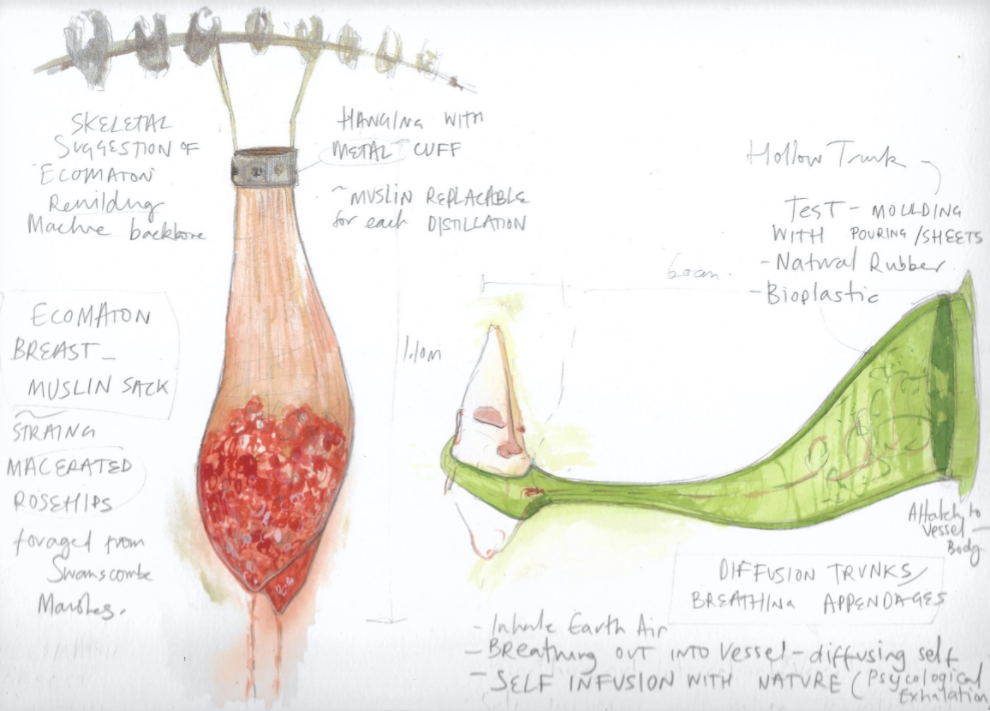 SKELETAL
SUGGESTION OF
ECOMATON
Rewilding
Machine backbone
HANGING WITH
METAL CUFF
~ MUSLIN REPLACABLE
for each DISTILLATION
ECOMATON
BREAST –
MUSLIN SACK
~
STRAING
MACERATED
ROSEHIPS
foraged from
Swanscombe
Marshes.
1.10m
60cm.
Hollow Trunk
TEST – MOULDING
WITH POURING / SHEETS
- Natural Rubber
- Bioplastic
Attatch to
Vessel –
Body
DIFFUSION TRUNKS /
BREATHING APPENDAGES
- Inhale Earth Air
- BREATHING OUT INTO Vessel – diffusing self
- SELF INFUSION WITH NATURE (Psycological
Exhalation